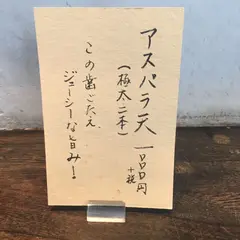 アスパラ天 一〇〇〇円
+税
(極太二本)
この歯ごたえ
ジューシーな旨み!